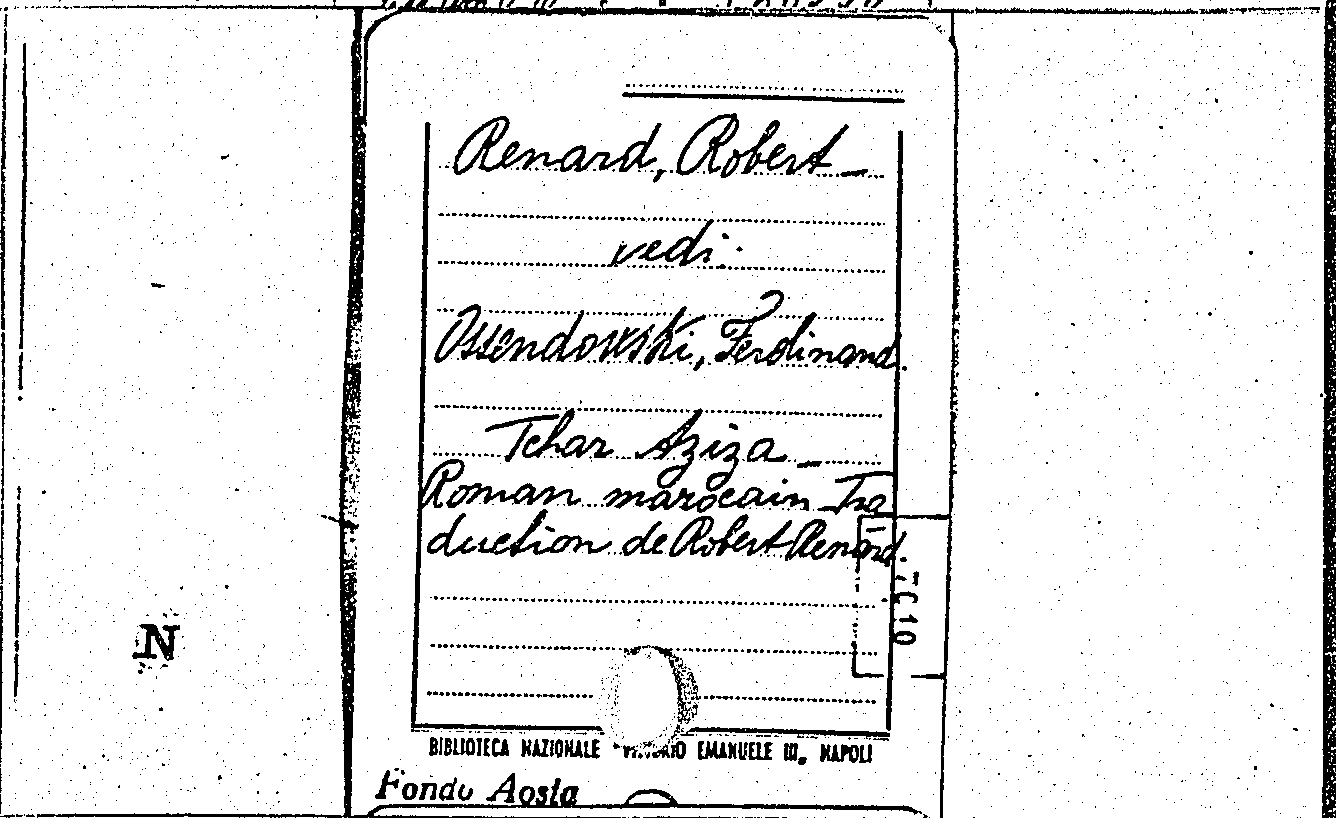 Renard, Robert –
vedi:
Ossendowski, Ferdinand.
Tchar Aziza –
Roman marocain – Tra
duction de Robert Renard.
N
BIBLIOTECA NAZIONALE EMANUELE III, NAPOLI
Fondo Aosta